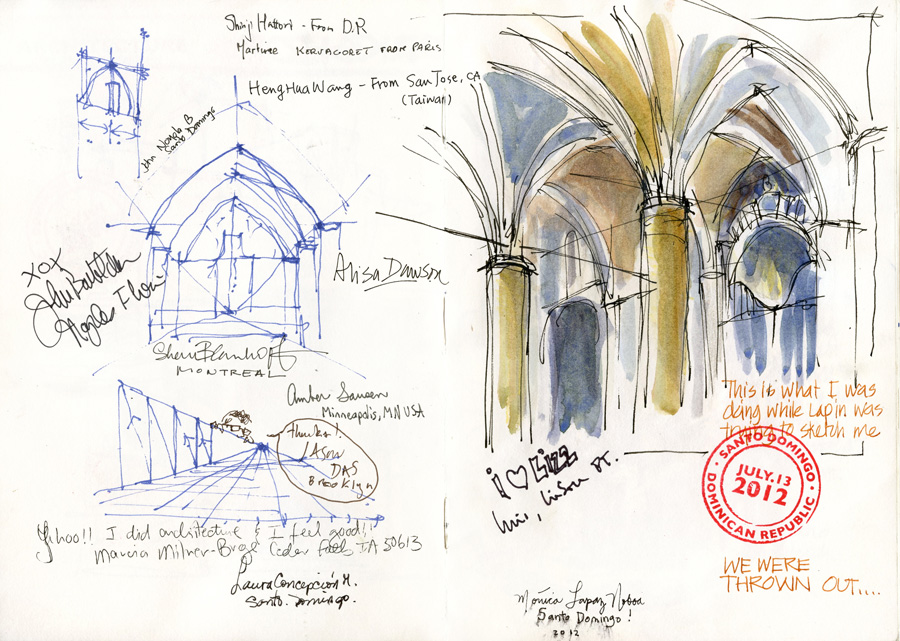 Shinji Hattori - From D.R
Martine KERVAGORET FROM PARIS
Heng Hua Wang - From San Jose, CA
(Taiwan)
John B
Santo Domingo
XOX
Alisa Dawson
MONTREAL
Amber Sausen
Minneapolis, MN USA
thanks!
JASON
DAS
Brooklyn
Yihoo!! I did architecture & I feel good!!
Marcia Milner-Brage Cedar Falls IA 50613
Laura Concepción M.
Santo. Domingo.
This is what I was
doing while Lapin was
trying to sketch me
SANTO DOMINGO
JULY.13
2012
DOMINICAN REPUBLIC
i ♡ Lizz
WE WERE
THROWN OUT....
Mónica Lapaz
Santo Domingo!
2012